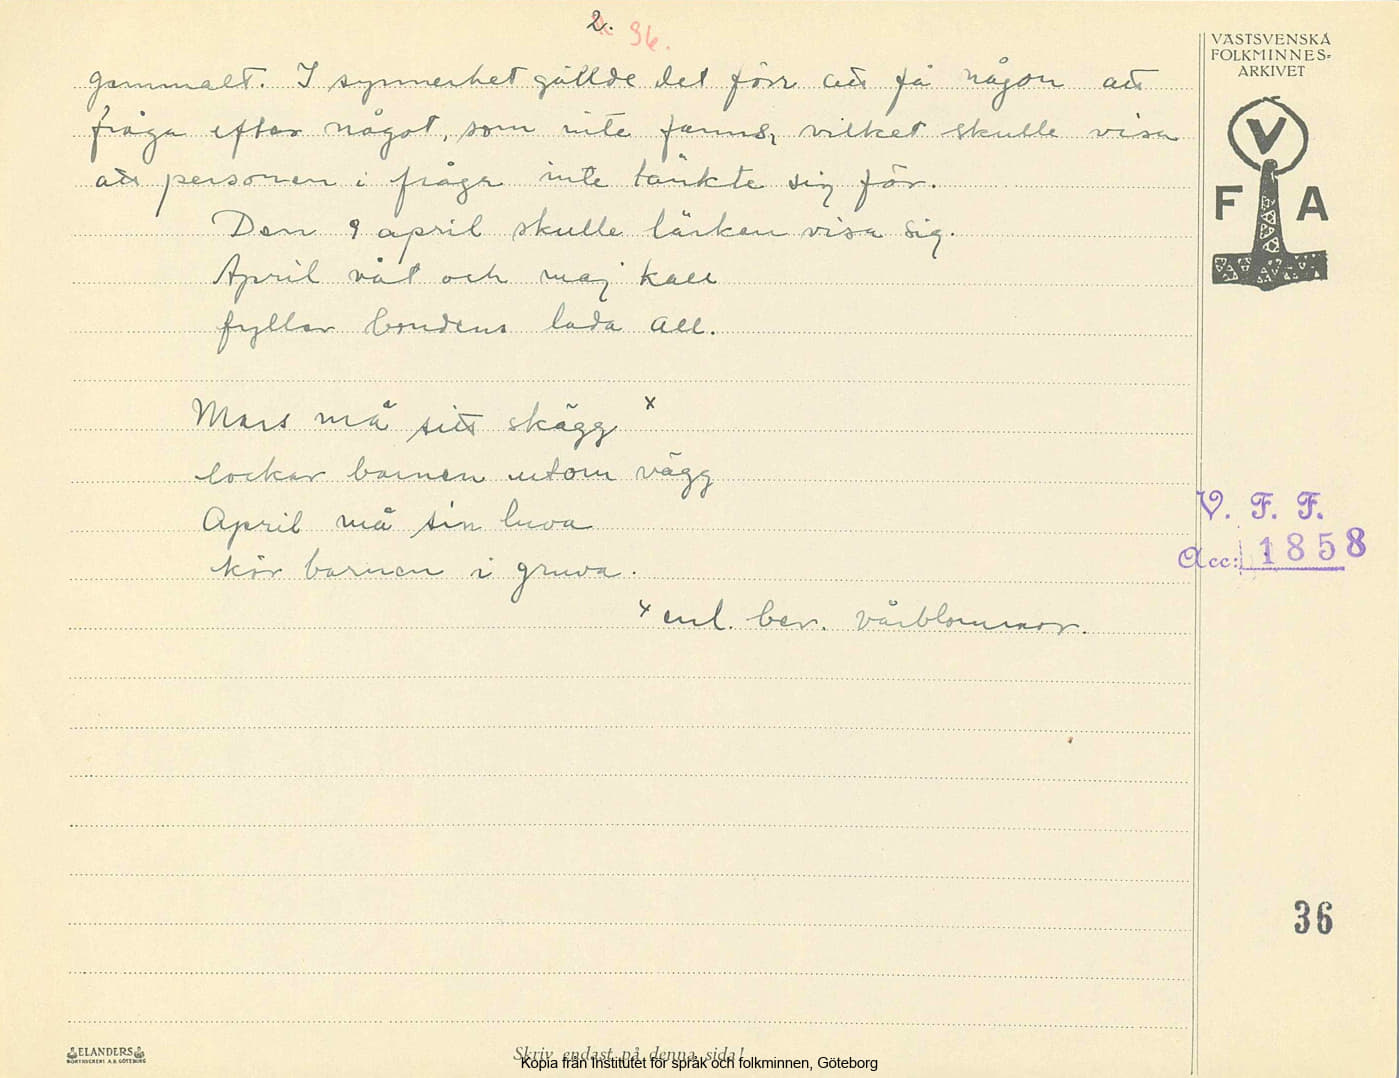 2. 36.
gammalt. I synnerhet gällde det förr att få någon att
fråga efter något, som inte fanns, vilket skulle visa
att personen i fråga inte tänkte sig för.
Den 9 april skulle lärken visa sig.
April våt och maj kall
fyller bondens lada all.
Mars må sitt skägg x
lockar barnen utom vägg
April må sin luva
kör barnen i gruva.
x enl. ber. vårblommor.
VÄSTSVENSKA
FOLKMINNES-
ARKIVET
V
F A
V. F. F.
Acc: 1858
36
ELANDERS
BOKTRYCKERI A.B. GÖTEBORG
Skriv endast på denna sida!
Kopia från Institutet för språk och folkminnen, Göteborg